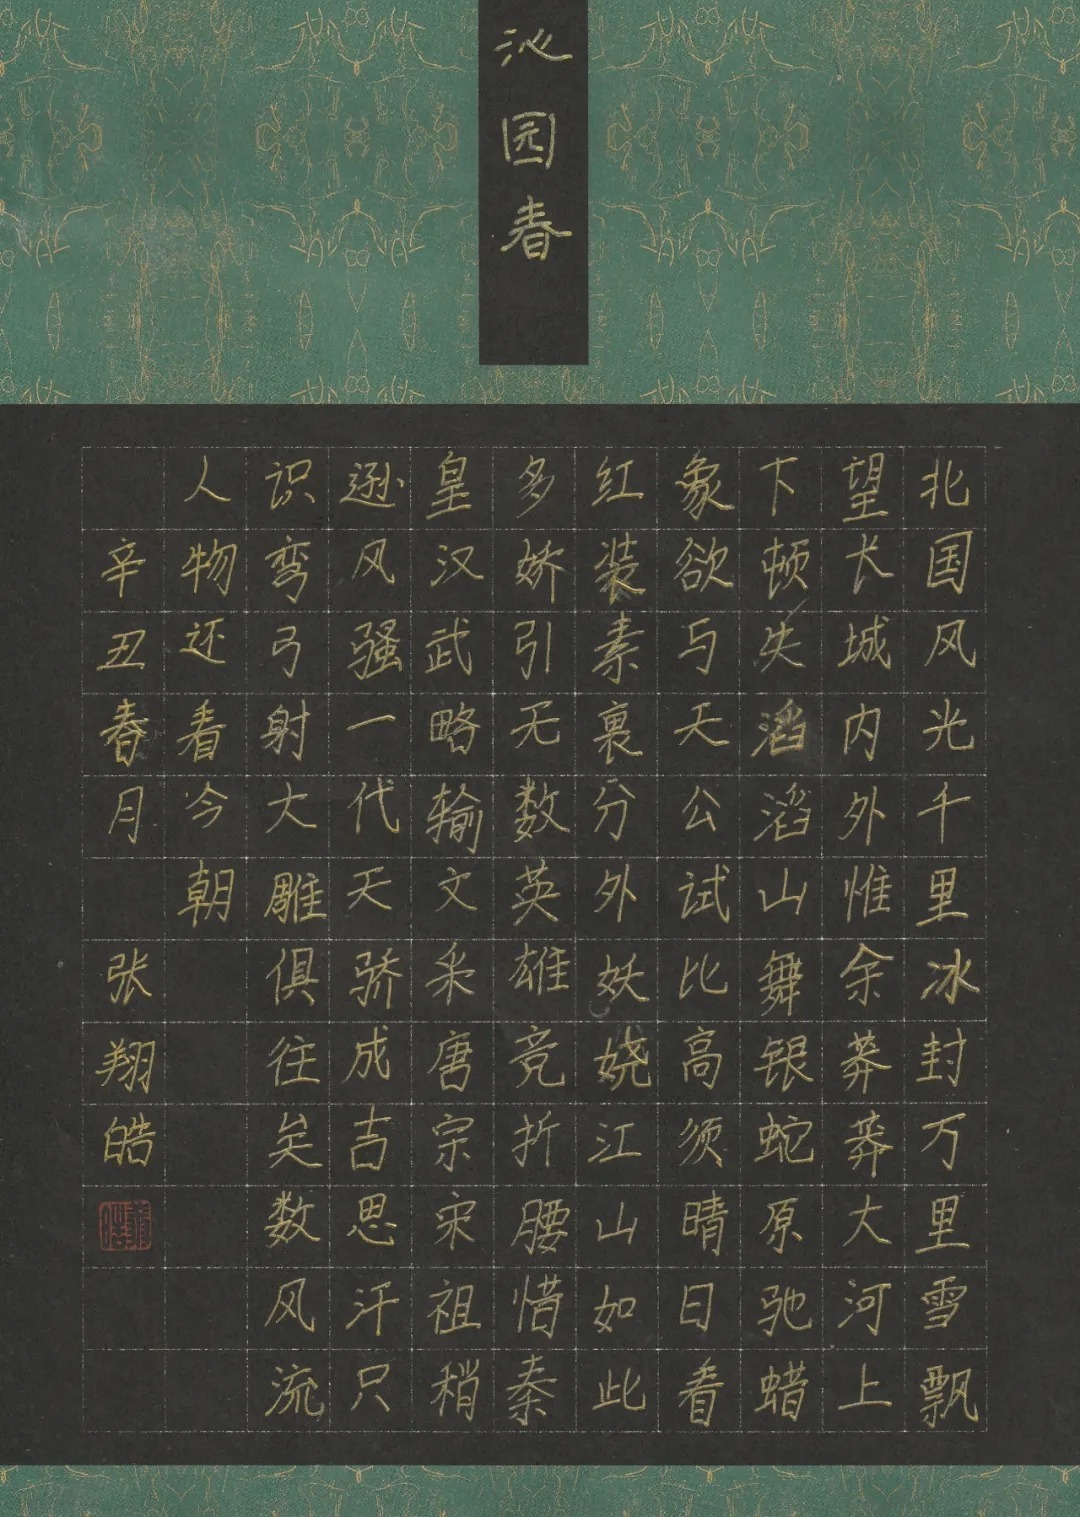 沁园春
北国风光千里冰封万里雪飘
望长城内外惟余莽莽大河上
下顿失滔滔山舞银蛇原驰蜡
象欲与天公试比高须晴日看
红装素裹分外妖娆江山如此
多娇引无数英雄竞折腰惜秦
皇汉武略输文采唐宗宋祖稍
逊风骚一代天骄成吉思汗只
识弯弓射大雕俱往矣数风流
人物还看今朝
辛丑春月 张翔皓